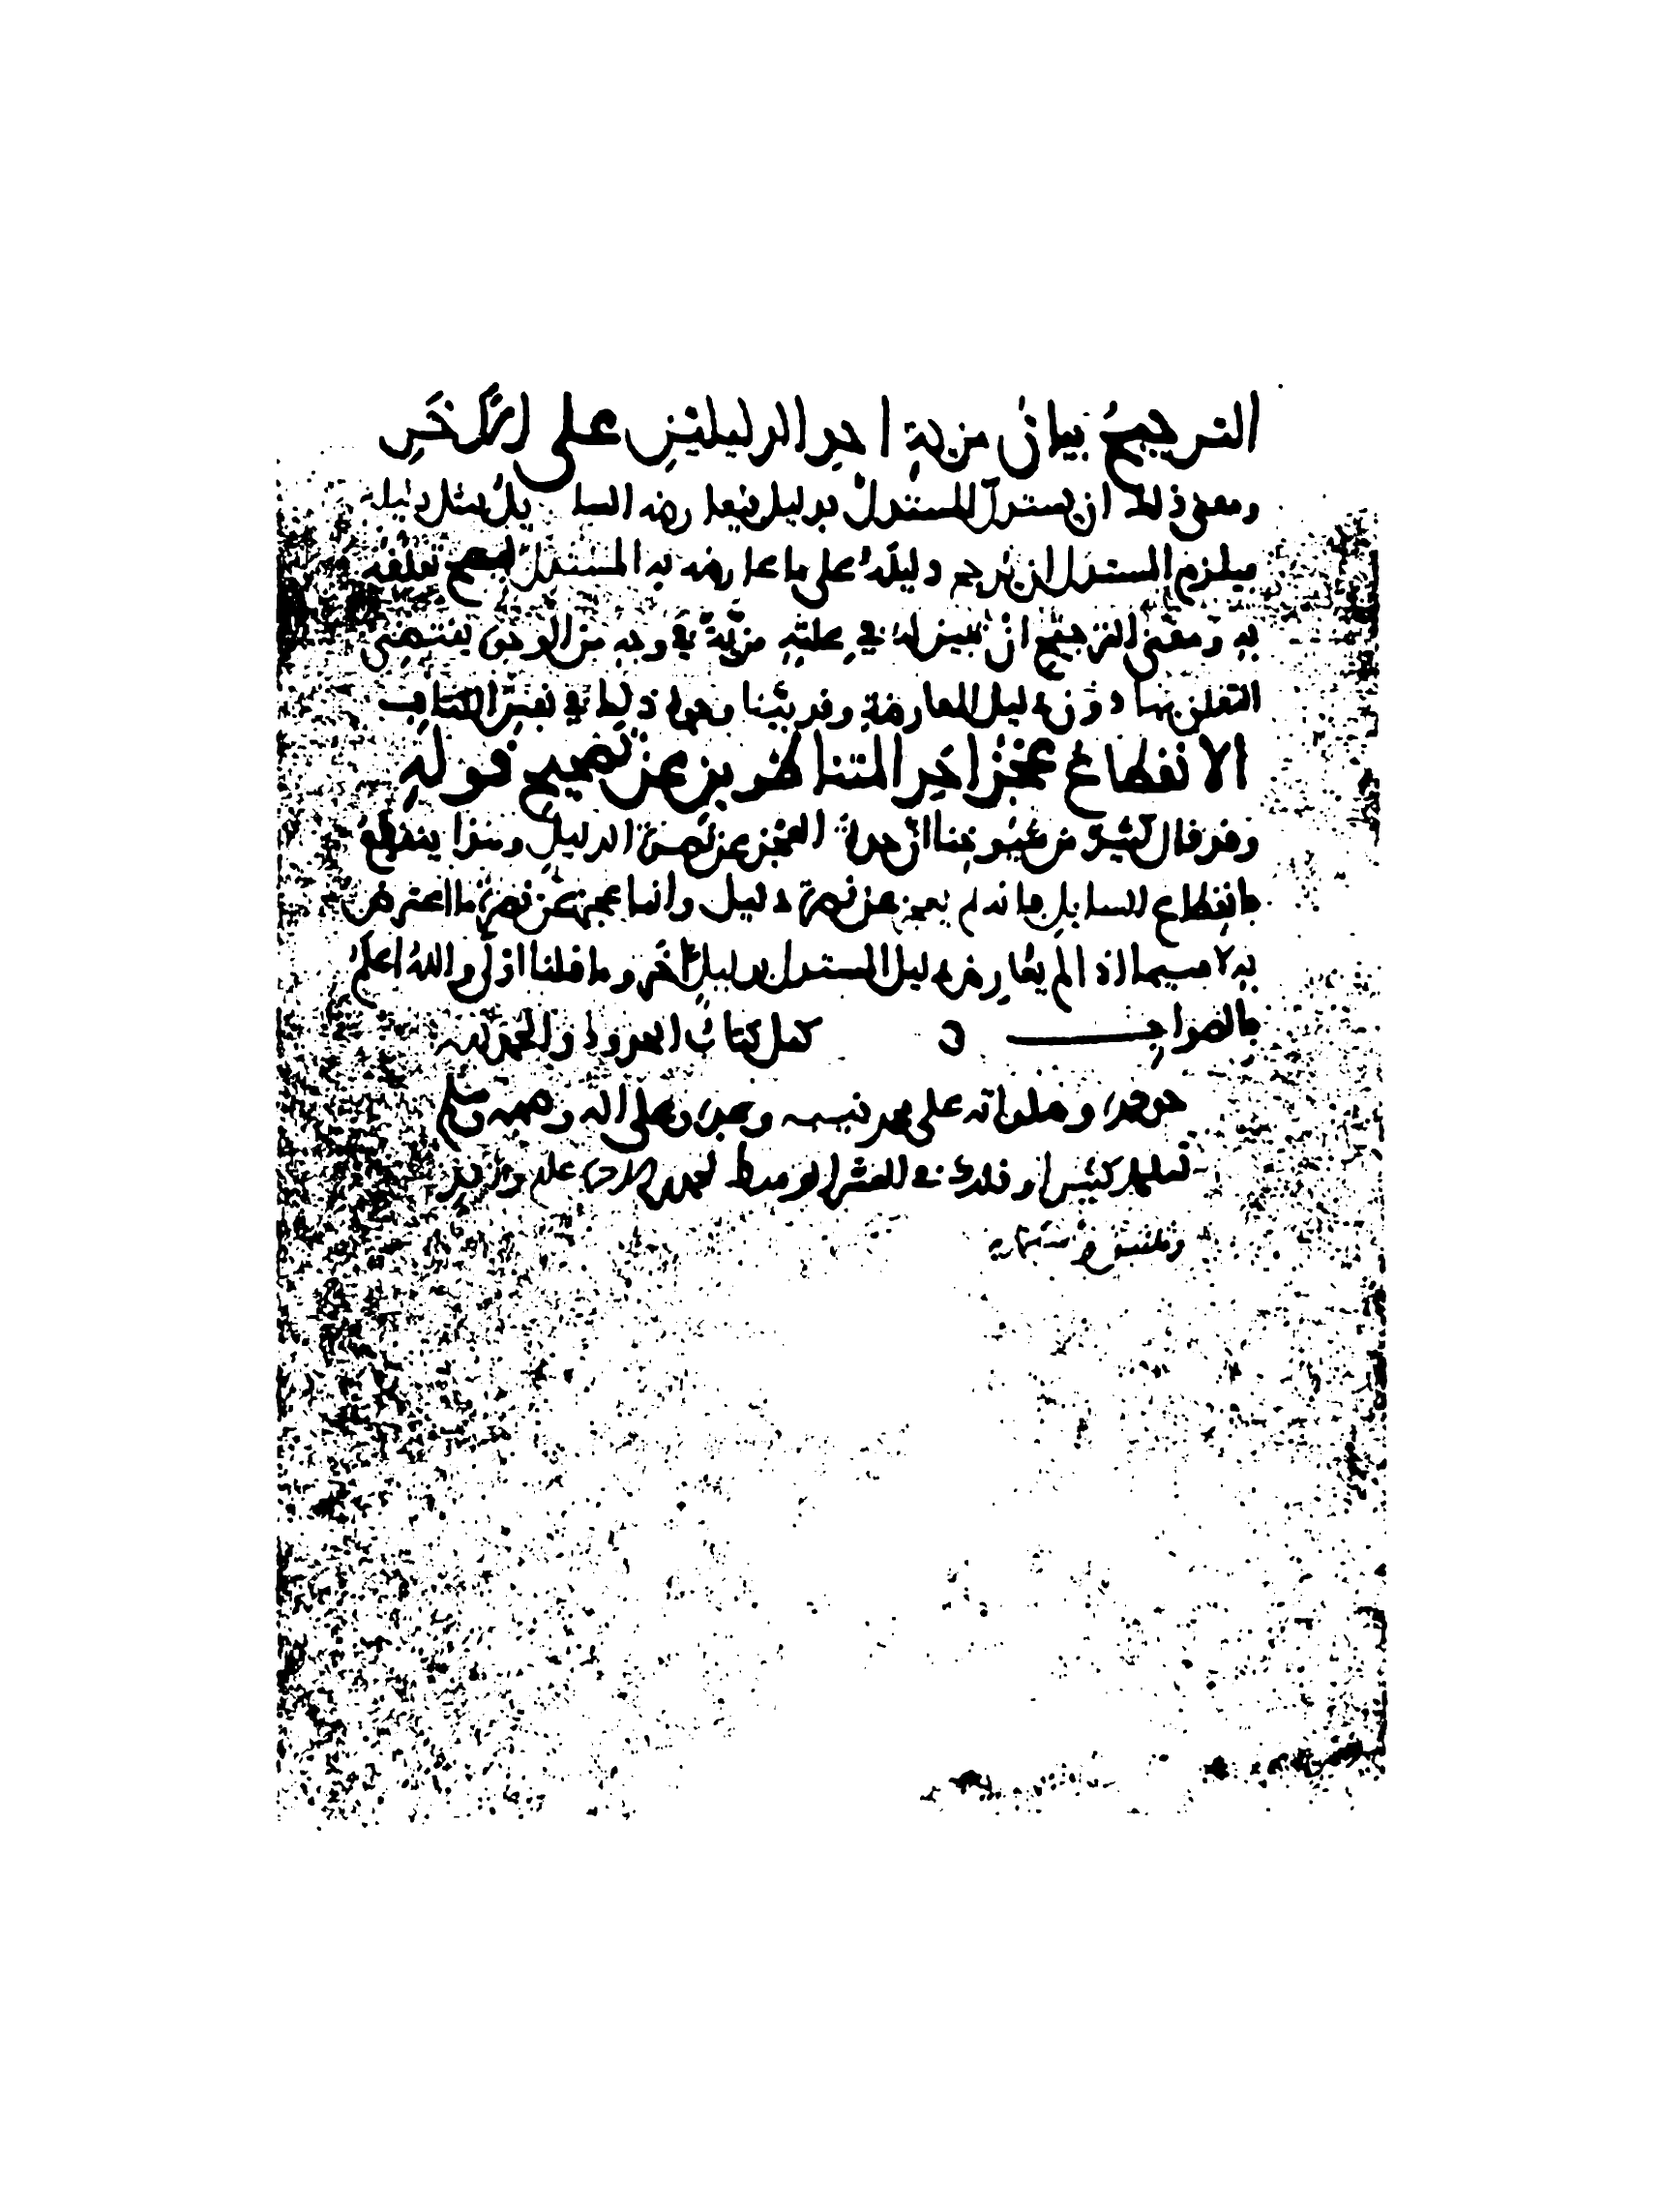 الترجيح بيان مزية احد الدليلين على الآخر
ومعنى ذلك ان يستدل المستدل بدليل فيعارضه السايل بمثل دليله
فيلزم المستدل ان يرجح دليله على ما عارضه به المستدل ليصح تعلقه
به ومعنى الترجيح ان يبين له في علته مزية في وجه من الوجوه يقتضي
التعلق بها دون دليل المعارضة وقد بينا وجوه ذلك في نفس الكتاب
الانقطاع عجز احد المتناظرين عن تصحيح قوله
وقد قال كثير من شيوخنا ان حده العجز عن نصرة الدليل وهذا ينتقض
بانقطاع السايل فانه لم يعجز عن نصرة دليل وانما عجز عن نصرة ما اعترض
به لا سيما اذا لم يعارض دليل المستدل بدليل آخر وما قلناه اولى والله اعلم
بالصواب كمل كتاب الحدود والحمد لله
حق حمده وصلواته على محمد نبيه وعبده وعلى اله وصحبه وسلم
تسليما كثيرا وذلك في العشر الوسط لجمدى الاخرى عام
وثلثين وستماية